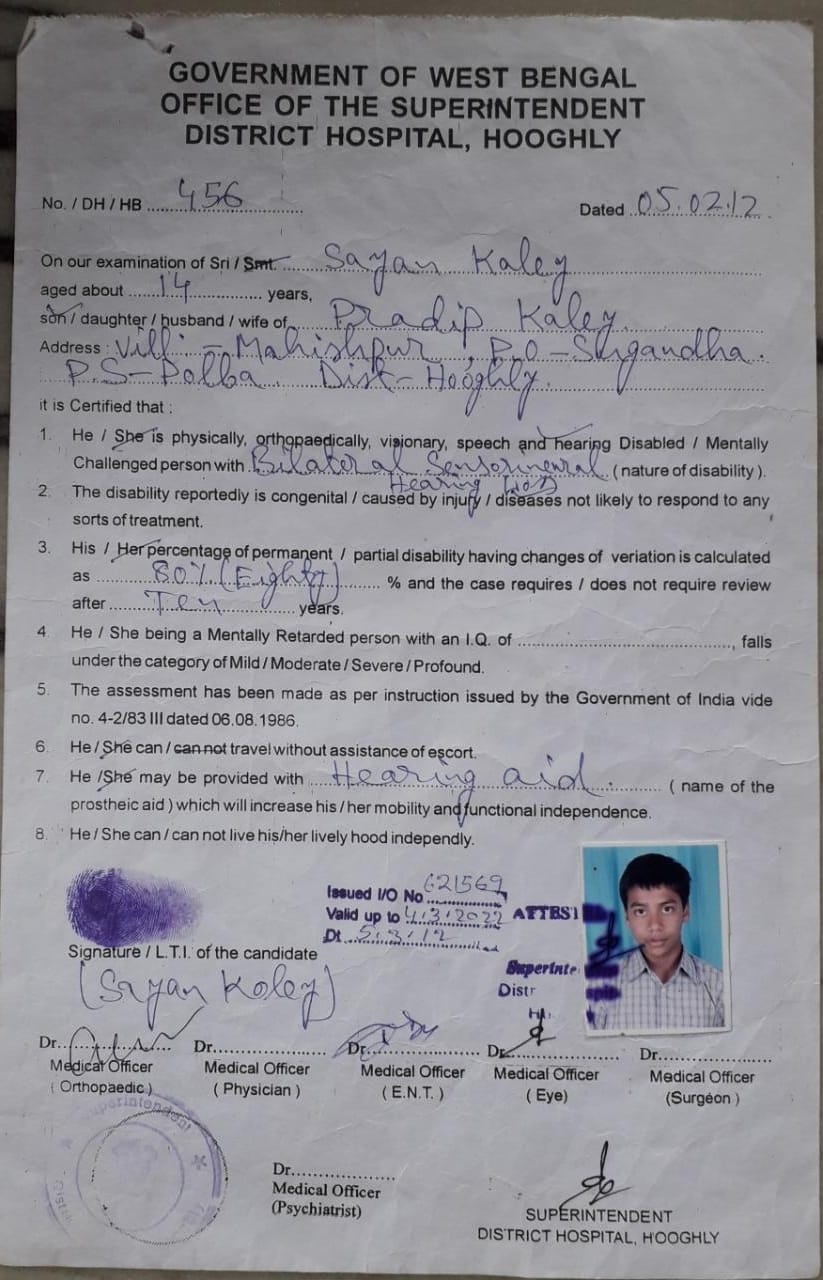 GOVERNMENT OF WEST BENGAL
OFFICE OF THE SUPERINTENDENT
DISTRICT HOSPITAL, HOOGHLY
No. / DH / HB 456
Dated 05.02.12
On our examination of Sri / Smt. Sayan Kaley
aged about 14 years,
son / daughter / husband / wife of Pradip Kaley.
Address : Vill:- Mahishpur, P.O - Sugandha.
P.S - Polba Dist - Hooghly.
it is Certified that :
1. He / She is physically, orthopaedically, visionary, speech and hearing Disabled / Mentally
Challenged person with Bilateral Sensorineural ( nature of disability ).
Hearing
2. The disability reportedly is congenital / caused by injury / diseases not likely to respond to any
sorts of treatment.
3. His / Her percentage of permanent / partial disability having changes of veriation is calculated
as 80% (Eighty) % and the case requires / does not require review
after Ten years.
4. He / She being a Mentally Retarded person with an I.Q. of , falls
under the category of Mild / Moderate / Severe / Profound.
5. The assessment has been made as per instruction issued by the Government of India vide
no. 4-2/83 III dated 06.08.1986.
6. He / She can / can not travel without assistance of escort.
7. He /She may be provided with Hearing aid. ( name of the
prostheic aid ) which will increase his / her mobility and functional independence.
8. He / She can / can not live his/her lively hood independly.
Issued I/O No 621569
Valid up to 4/3/2022 ATTEST
Dt 5.3.12
Signature / L.T.I. of the candidate
Superinte
Distr
(Sayan Koley)
Dr. Dr. Dr. Dr. Dr.
Medical Officer Medical Officer Medical Officer Medical Officer Medical Officer
( Orthopaedic ) ( Physician ) ( E.N.T. ) ( Eye) (Surgeon )
Superintendent
Dr.
Medical Officer
(Psychiatrist)
SUPERINTENDENT
DISTRICT HOSPITAL, HOOGHLY